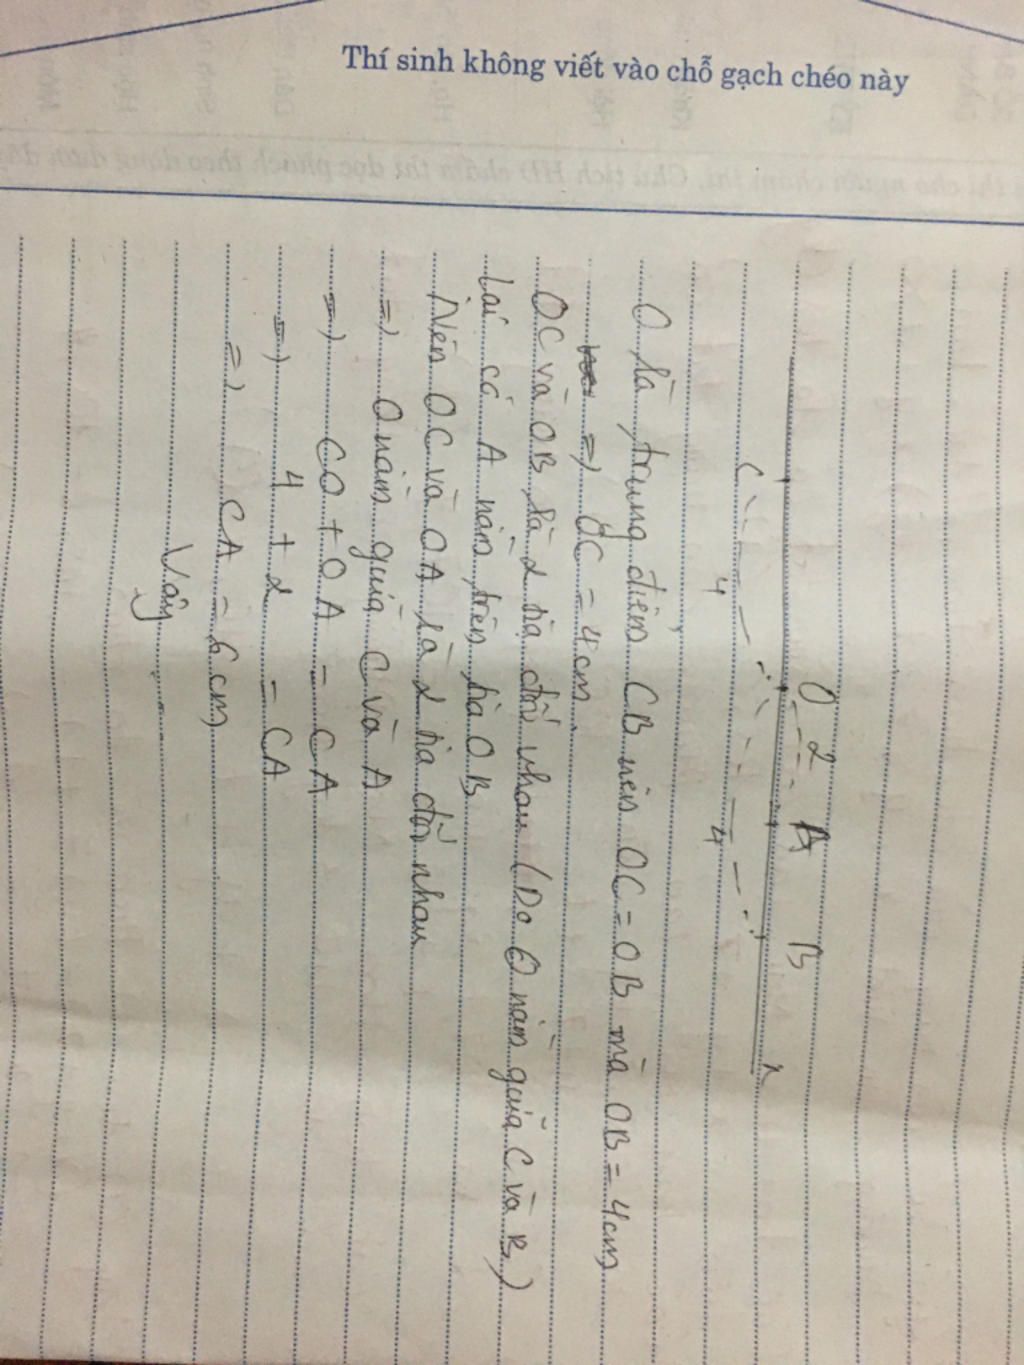 Thí sinh không viết vào chỗ gạch chéo này
O 2 A B x
C 4 4
O là trung điểm CB nên OC = OB mà OB = 4cm
=) OC = 4cm.
OC và OB là 2 tia đối nhau (Do O nằm giữa C và B)
Lại có A nằm trên tia OB
Nên OC và OA là 2 tia đối nhau
=) O nằm giữa C và A
=) CO + OA = CA
=) 4 + 2 = CA
=) CA = 6 cm
Vậy